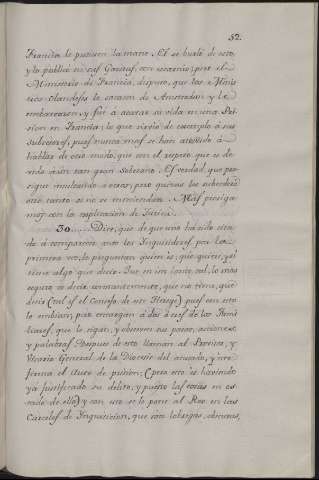 52.
Francia le pusiesen la mano. El se burló de esto,
y lo publicó en sus Gacetas, con escarnio; pero el
Ministerio de Francia, dispuso, que los Minis
tros Olandeses le sacasen de Amsterdam y le
embarcasen, y fué a acavar su vida en una Pri
sion en Francia; lo que sirvió de exemplo á sus
subcesores, pues nunca mas se han atrevido á
hablar de este modo, que con el respeto que se de-
vida á un tan gran Soberano. Es verdad, que per-
sigue mordiendo á otros; pero quizas les subcederá
otro tanto si no se enmiendan. Mas prosiga
mos con la explicacion de
30.... Dice, que de que uno ha sido cita
do á comparecer ante los Inquisidores por la
primera vez, le preguntan quien es, que quiere, y si
tiene algo que decir. Que en un lance tal, lo mas
seguro es decir constantemente, que no tiene que
decir (tal es el Consejo de este Herege) pues con esto
le embian, pero encargan á dos ó tres de los Fami
liares, que le sigan, y observen sus pasos, acciones
y palabras. Despues de esto llaman al Provisor, y
Vicario General de la Diocesis del acusado, y se
firma el Auto de prision; (pero esto es haviendo
ya justificado su delito, y puesto las cosas en es
tado de ello) y con esto se le pone al Reo en las
Carceles de Inquisicion, que son lobregas, obscuras,